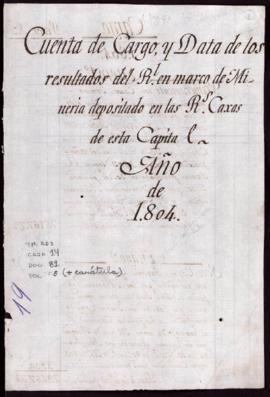 Cuenta de Cargo, y Data de los
resultados del Rl. en marco de Mi-
neria depositado en las Rs. Caxas
de esta Capital
Año
de
1.804.
CAJA 19
DOC. 82
(+ carátula)
19